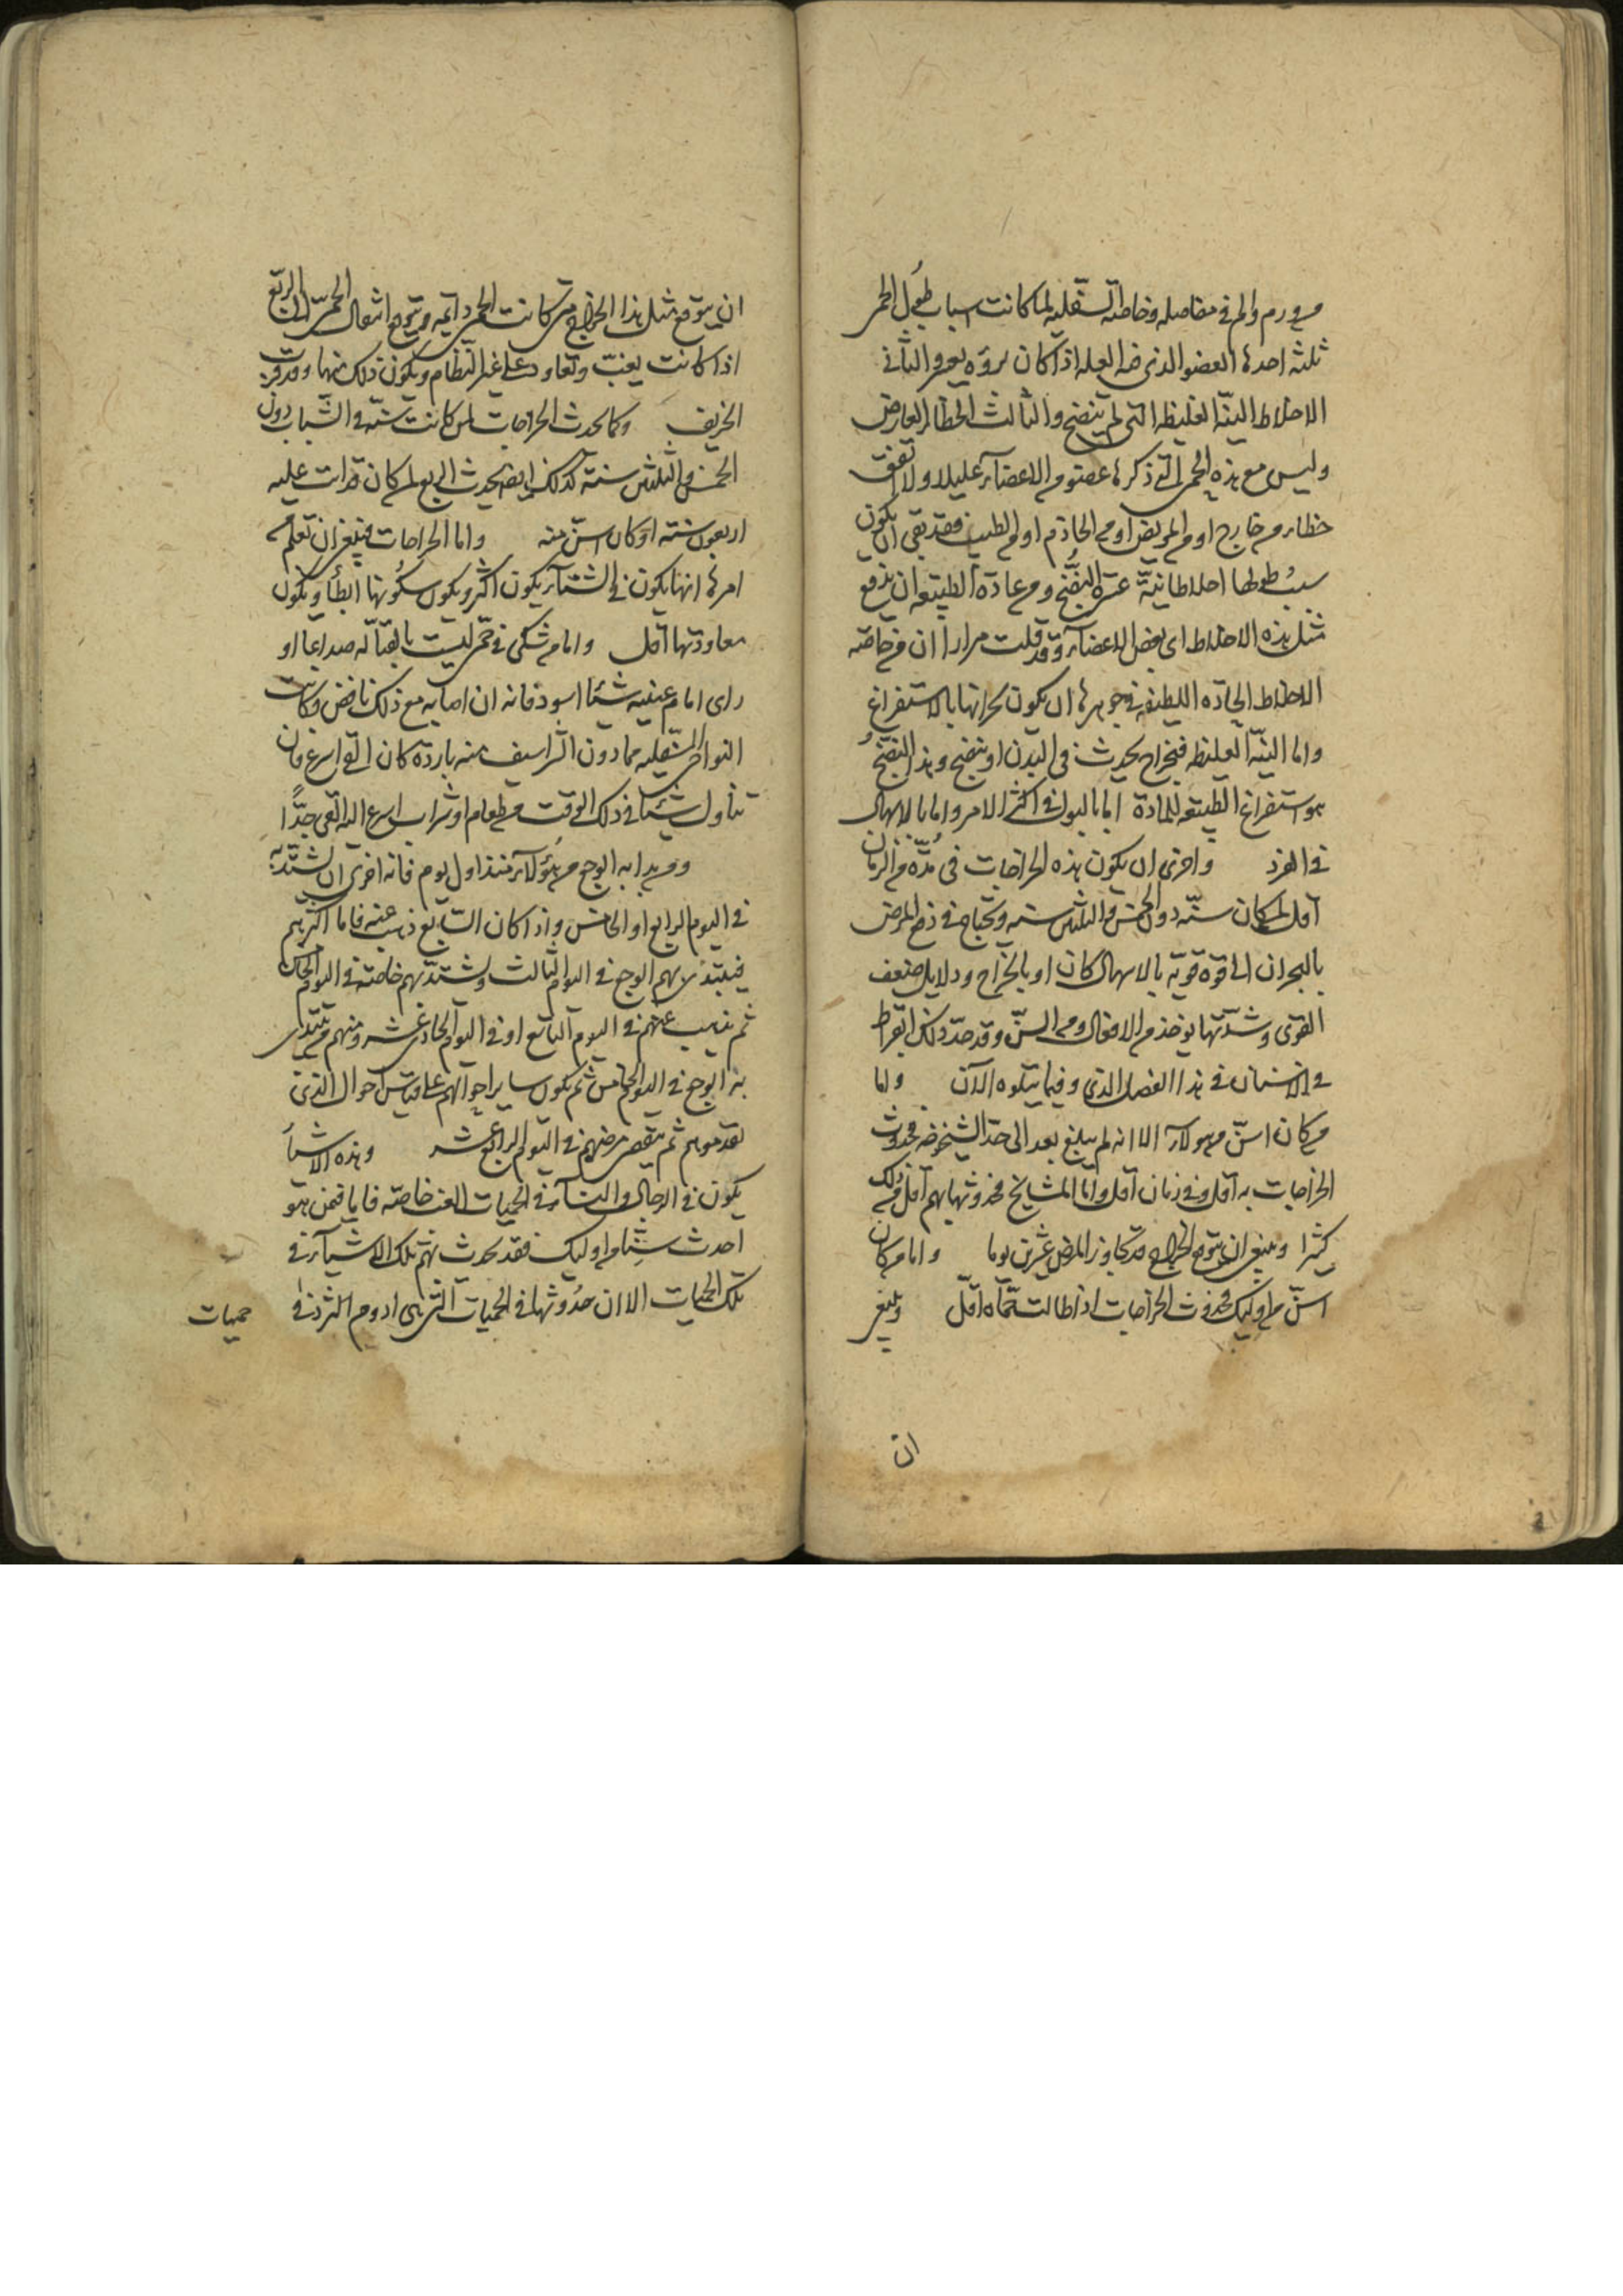 من ورم والم في مفاصله وخاصة السفلية لما كانت اسباب طول الحمى
ثلثة احدها العضو الذي فيه العله اذا كان برؤه يعسر والثاني
الاخلاط النيّة الغليظه التي لم تنضج والثالث الخطا العارض
وليس مع هذه الحمى التي ذكرها عضو من الاعضآء عليلا ولا تقف
خطاء من خارج او من المريض او من الخادم او من الطبيب فقد بقى ان يكون
سبب طولها اخلاطا نيّة عسرة النضج ومن عادة الطبيعه ان تدفع
مثل هذه الاخلاط الى بعض الاعضآء وقد قلت مرارا ان من خاصّه
الاخلاط الحادّه اللطيفه في جوهرها ان يكون بحرانها بالاستفراغ
واما النيّة الغليظه فبخراج يحدث في البدن او بنضج وهذا النضج
هو استفراغ الطبيعه للمادة اما بالبول في اكثر الامر واما بالاسهال
في الفرد واحرى ان يكون هذه الخراجات في مدّة من الزمان
اقل لمن كان سنّه دون الخمس والثلثين سنه ويحتاج في دفع المرض
بالبحران الى قوة قويّه بالاسهال كان او بالخراج ودلايل ضعف
القوى وشدّتها يوخذ من الافعال ومن السنّ وقد حدّد ذلك ابقراط
من الاسنان في هذا الفصل الذي وفيما يتلوه الآن واما
من كان اسنّ من هولآء الا انه لم يبلغ بعد الى حد الشيخوخه فحدوث
الخراجات به اقل وفي زمان اقل وامّا المشايخ فحدوثها بهم اقل من ذلك
كثيرا وينبغي ان يتوقع الخراج متى تجاوز المرض عشرين يوما واما من كان
اسنّ من اوليك فحدوث الخراجات اذا طالت حمّاه اقلّ وينبغي
ان
ان يتوقع مثل هذا الخراج متى كانت الحمى دائمه ويتوقع انتقال الحمّى الى الربع
اذا كانت يغبّ وتعاود على غير النظام ويكون ذلك منها وقد قرب
الخريف وكما يحدث الخراجات لمن كانت سنّه في الشباب دون
الخمس والثلثين سنة كذلك ايضا يحدث الربع لمن كان قد اتت عليه
اربعون سنه او كان اسنّ منه واما الخراجات فينبغي ان تعلم من
امرها انها يكون في الشتآء يكون اكثر ويكون سكونها ابطأ ويكون
معاودتها اقل واما من شكى في حمّى ليست بالقتّاله صداعا او
راى امام عينيه شيئا اسود فانه ان اصابه مع ذلك نافض وكانت
النواحي السّفليه مما دون الشراسيف منه باردة كان القئ اسرع فان
تناول شيئا في ذلك الوقت من طعام او شراب اسرع اليه القئ جدًّا
ومن بدا به الوجع من هؤلآء منذ اول يوم فانه احرى ان يشتدّ به
في اليوم الرابع او الخامس واذا كان السابع ذهب عنه فاما اكثرهم
فيبتدى بهم الوجع في اليوم الثالث ويشتد بهم خاصّة في اليوم الخامس
ثم يذهب عنهم في اليوم التاسع او في اليوم الحادي عشر ومنهم من يبتدى
به الوجع في اليوم الخامس ثم يكون ساير احوالهم على قياس احوال الذين
تقدموهم ثم ينقضى مرضهم في اليوم الرابع عشر وهذه الاشيأ
يكون في الرجال والنسآء في الحميات الغب خاصّه فاما فيمن هو
احدث سنّا من اوليك فقد يحدث بهم تلك الاشيآء في
تلك الحميات الا ان حدوثها في الحميات التي هى ادوم اكثر وفي
حميات